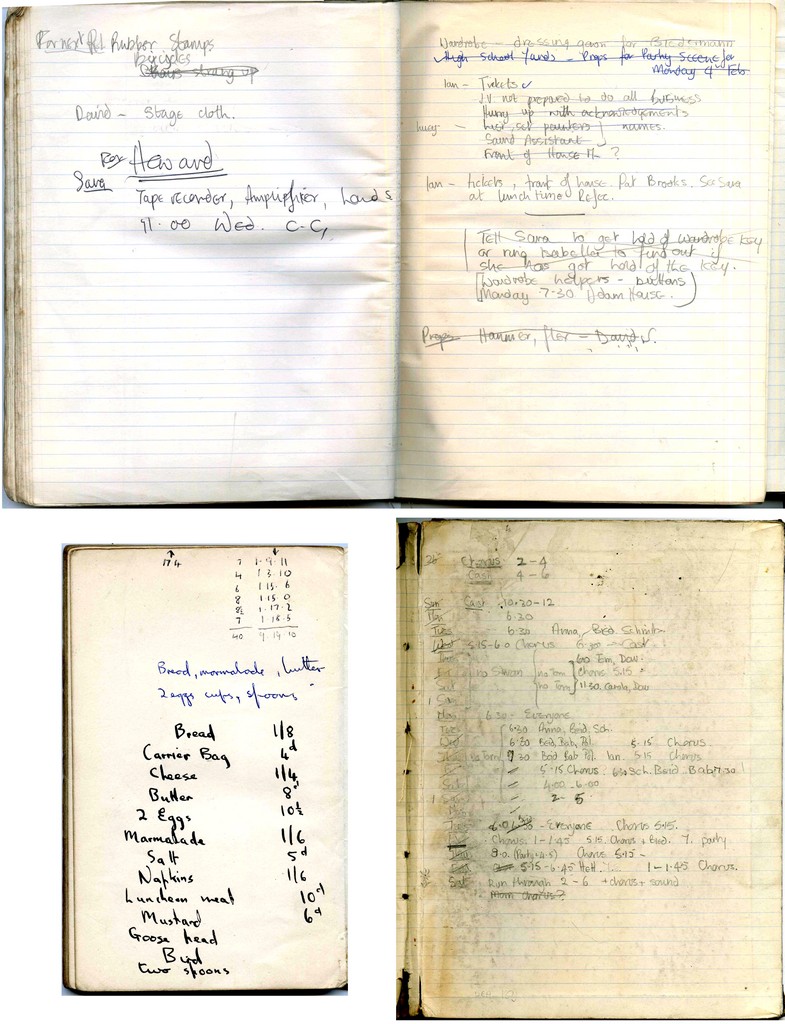 Rubber Stamps
bicycles
Chairs strung up
David - stage cloth.
Howard
Sara
Tape recorder, Amplifier, Leads
11.00 Wed. C-C,
Wardrobe - dressing gown for Biedermann
High School funds - Props for Party Scene for
Monday 4th Feb
Ian - Tickets ✓
J.V. not prepared to do all business
Hurry up with acknowledgements
Lucy - List, set painters } names.
Sound Assistant
Front of House M ?
Ian - tickets, front of house. Pat Brooks. See Sara
at lunch time Refec.
Tell Sara to get hold of wardrobe key
or ring Isabelle to find out if
she has got hold of the key.
[Wardrobe helpers - buttons
Monday 7.30 Adam House.)
Props Hammer, - David
174
7 1.9.11
4 1 3.10
6 1 15.6
8 1 15.0
8½ 1.17.2
7 1.18.5
40 9.19.10
Bread, marmalade, butter
2 eggs cups, spoons
Bread 1/8
Carrier Bag 4d
Cheese 1/4
Butter 8d
2 Eggs 10½
Marmalade 1/6
Salt 5d
Napkins 1/6
Luncheon meat 10d
Mustard 6d
Goose head
Bird
two spoons
Chorus 2-4
Cast 4-6
Sun Cast 10.30-12
6.30
Tues 6.30 Anna, Bied Schmitz
Wed 5.15-6.0 Chorus 6.30 - Cast
6.0 Tom, Dow.
no Sharon no Tom Chorus 5.15
Sat no Tom 11.30. Carola, Dow
Sun
Mon 6.30 - Everyone
Tues 6.30 Anna, Beid, Sch.
Wed 6.30 Beid, Bab, Pol. 5.15 Chorus
no Tom 7.30 Beid Bab Pol. Ian. 5.15 Chorus
5.15 Chorus. 6.30 Sch. Beid. Bab 7.30
Sat 4.00 - 6.00
2 - 5
- Everyone Chorus 5.15.
Chorus 1-1.45 5.15. Chorus + Bied. 7. party
8.0 (Party) Chorus 5.15 -
5.15 - 6.45 1 - 1.45 Chorus.
Sat Run through 2-6 + chorus + sound
chorus?